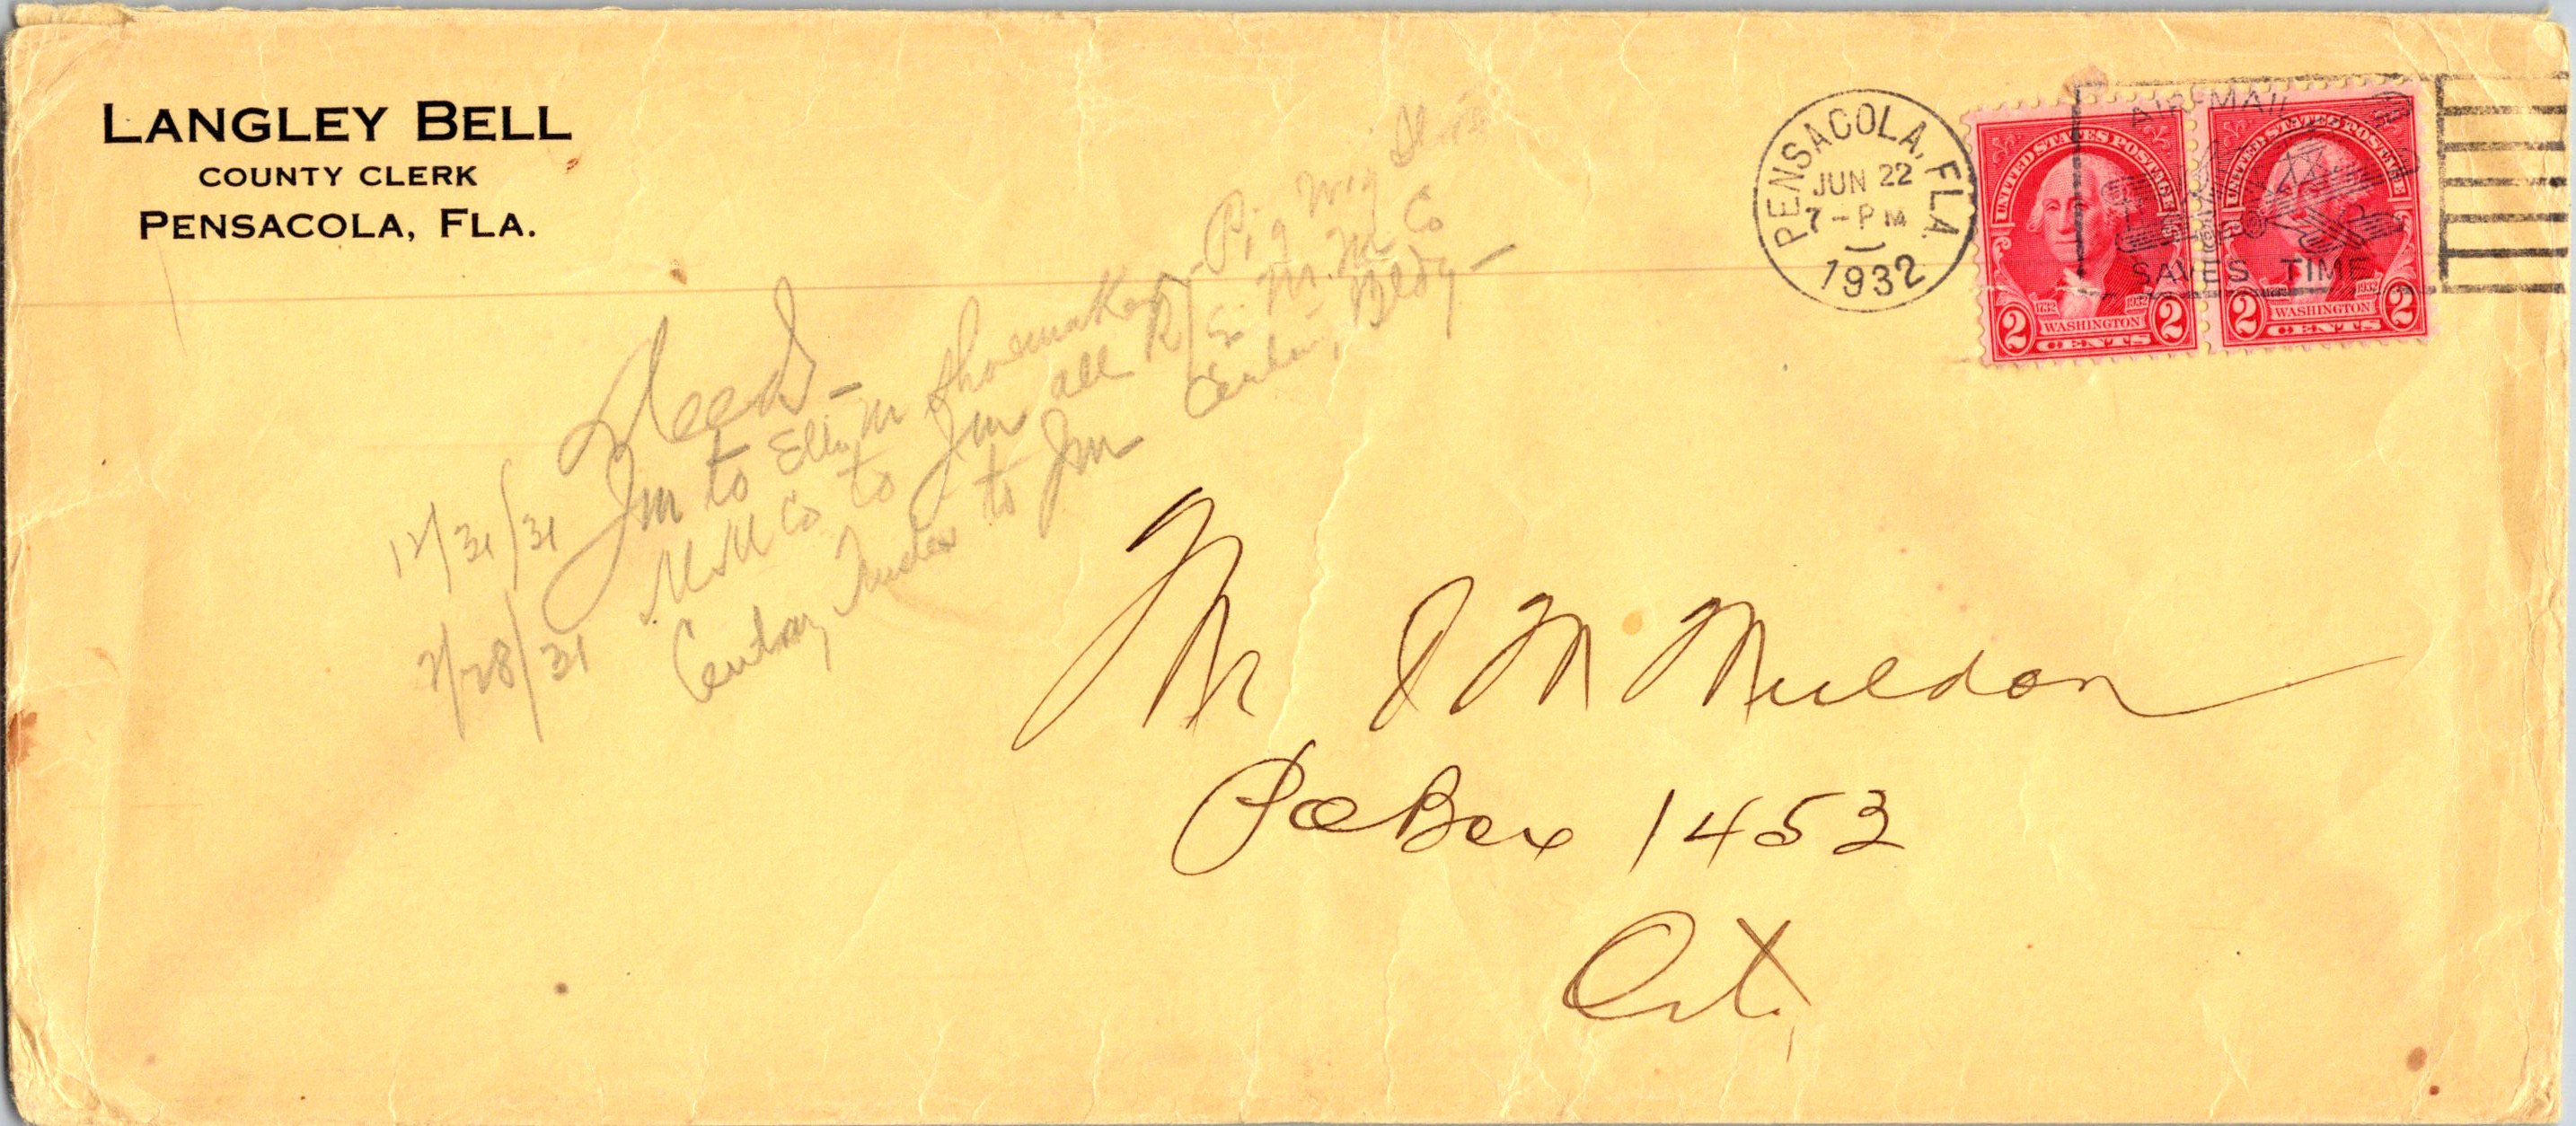 LANGLEY BELL
COUNTY CLERK
PENSACOLA, FLA.
PENSACOLA, FLA.
JUN 22
7-PM
1932
AIR-MAIL
SAVES TIME
UNITED STATES POSTAGE
1732 1932
2 WASHINGTON 2
CENTS
UNITED STATES POSTAGE
1932
2 WASHINGTON 2
CENTS
Deeds -
12/31/31 Jm to Ellen M Shoemaker - Pig Wig Store
7/28/31 M M Co to Jm all R/E M. M. Co
Century Trustee to Jm Century Bldg -
Mr J M Muldon
PO Box 1453
City